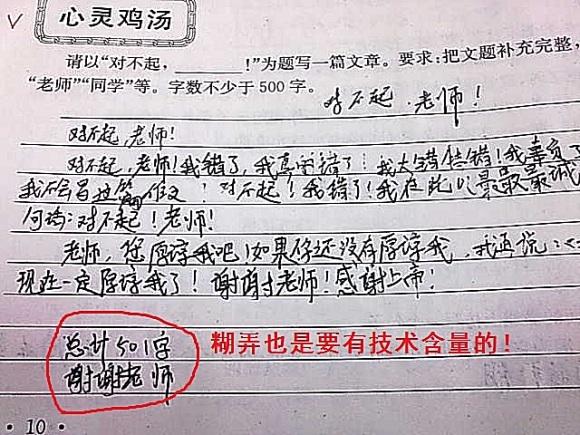 心灵鸡汤
请以“对不起，______！”为题写一篇文章。要求：把文题补充完整，
“老师”“同学”等。字数不少于500字。
对不起，老师！
对不起，老师！
对不起，老师！我错了，我真的错了！我大错特错！我辜负了
我不会写这篇作文！对不起！我错了！我在此以最最最诚
句话：对不起！老师！
老师，您原谅我吧！如果你还没有原谅我，我还说：<<
现在一定原谅我了！谢谢老师！感谢上帝！
总计501字
谢谢老师
糊弄也是要有技术含量的！
· 10 ·